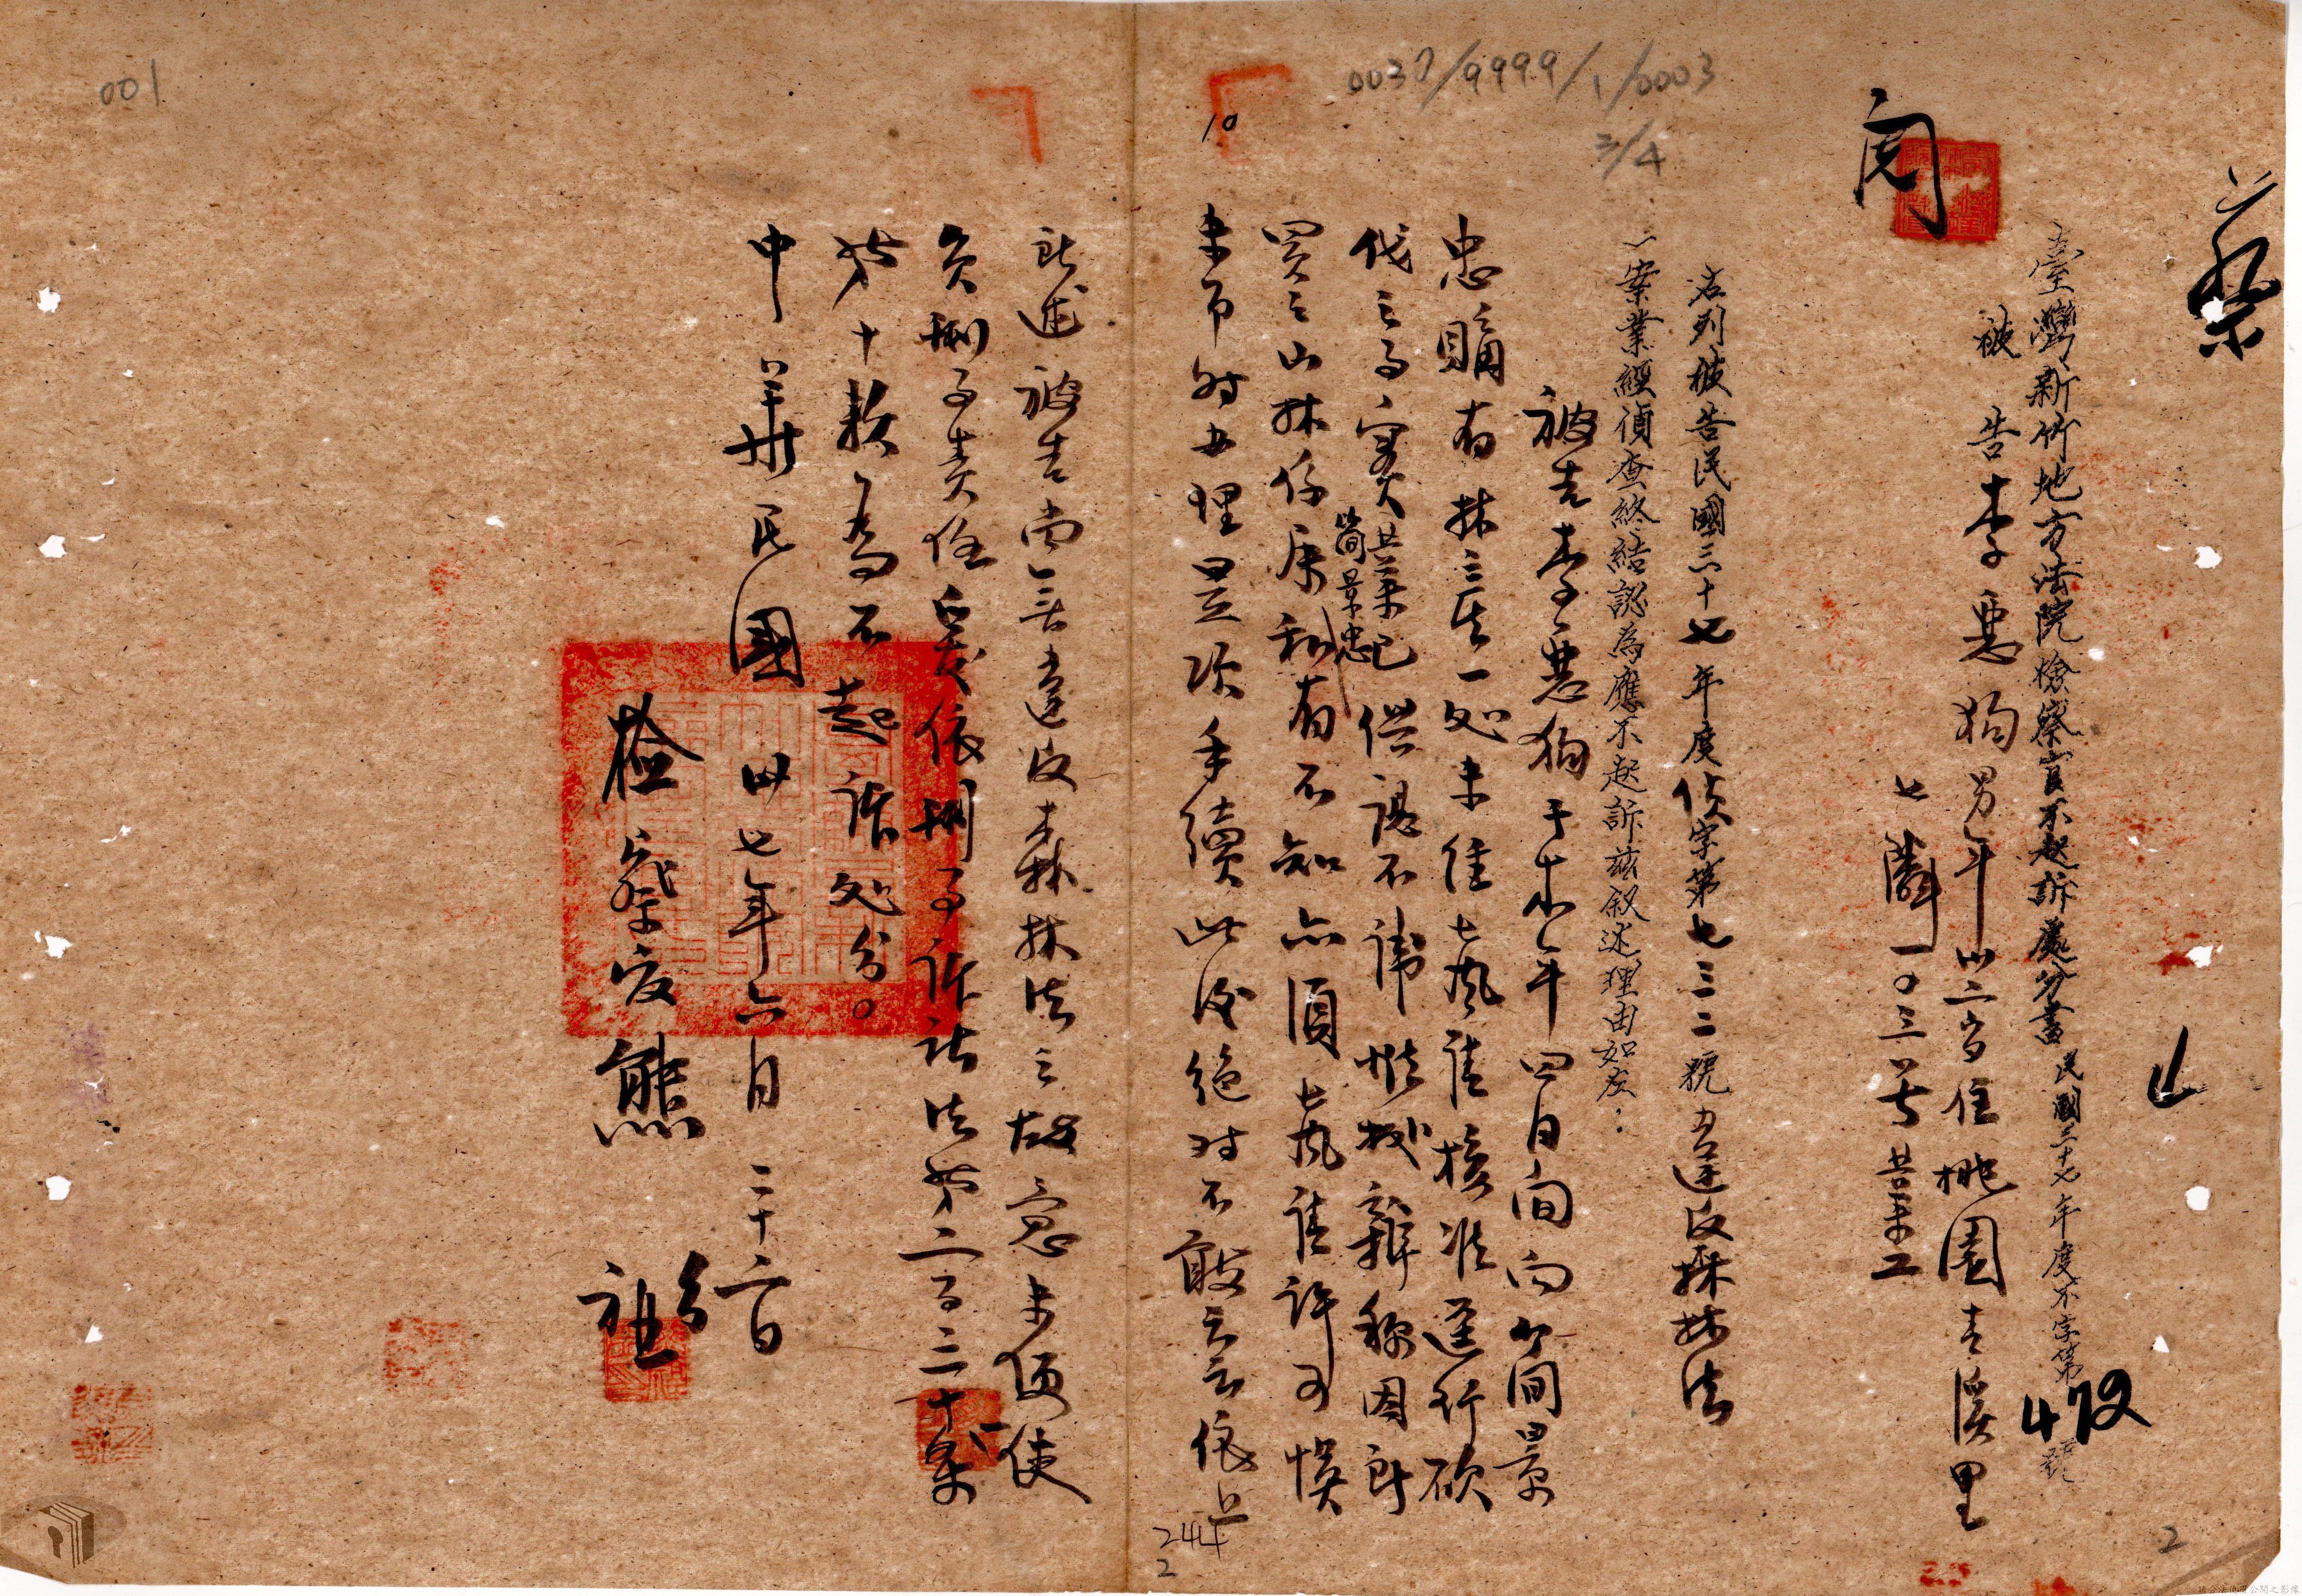 001
0037/9999/1/0003
3/4
10
閱
蔡
臺灣新竹地方法院檢察官不起訴處分書 民國三十七年度不字第472號
被告 李惡狗 男年卅二歲住桃園青溪里
七鄰一〇三號 苦工
右列被告民國三十七年度偵字第七三二號為違反森林法
一案業經偵查終結認為應不起訴茲敘述理由如左：
被告李惡狗于本年四月間向簡景
忠購有林產一处未往七執請核准逕行砍
伐之事实業已供認不諱惟據辯称因所
簡景忠
買之山林係原私有不知亦須執請許可悞
未即时办理是次手續此後絕对不敢云云依上
所述被告尚無違反森林法之故意未便使
負刑事責任爰依刑事訴訟法第二百三十一條
第十款為不起訴处分。
中華民國卅七年六月二十六日
檢察官熊紹祖
244
2
2